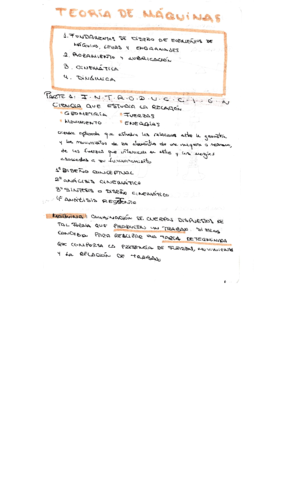 TEORÍA DE MÁQUINAS
1. FUNDAMENTOS DE DISEÑO DE ELEMENTOS DE
MÁQUINA, LEVAS Y ENGRANAJES
2. RODAMIENTO Y LUBRICACIÓN
3. CINEMÁTICA
4. DINÁMICA
PARTE 1: I-N-T-R-O-D-U-C-C-I-Ó-N
CIENCIA QUE ESTUDIA LA RELACIÓN
· GEOMETRÍA · FUERZAS
· MOVIMIENTO · ENERGÍAS
ciencia aplicada que estudia las relaciones entre la geometría
y los movimientos de los elementos de una máquina o
de las fuerzas que intervienen en estos y las energías
asociadas a su funcionamiento
1º DISEÑO CONCEPTUAL
2º ANÁLISIS CINEMÁTICO
3º SÍNTESIS O DISEÑO CINEMÁTICO
4º ANÁLISIS
MÁQUINA: COMBINACIÓN DE CUERPOS DISPUESTOS DE
TAL FORMA QUE PRODUCEN UN TRABAJO
CONCEBIDA PARA REALIZAR UNA TAREA DETERMINADA
QUE COMPORTA LA PRESENCIA DE FUERZAS, MOVIMIENTOS
Y LA REALIZACIÓN DE TRABAJO